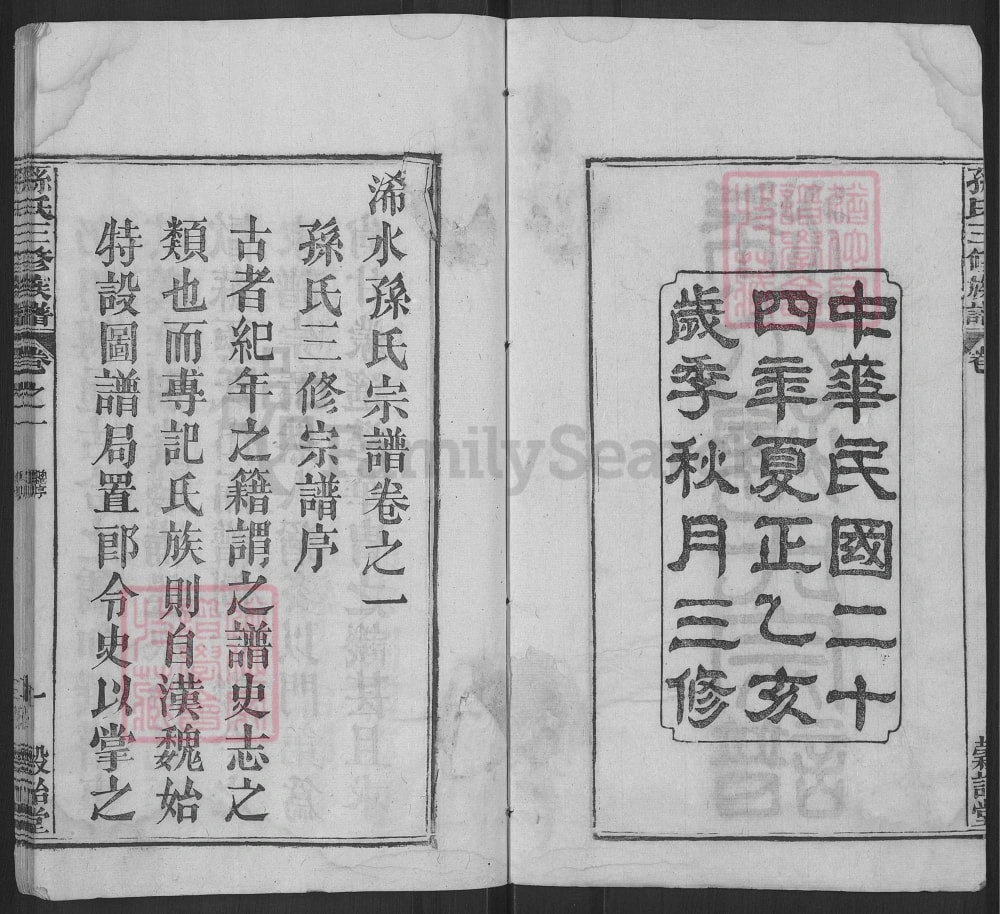 中華民國二十
四年夏正乙亥
歲季秋月三修
浠水孫氏宗譜卷之一
孫氏三修宗譜序
古者紀年之籍謂之譜史志之
類也而專記氏族則自漢魏始
特設圖譜局置郎令史以掌之
孫氏三修族譜
卷之一
FamilySea